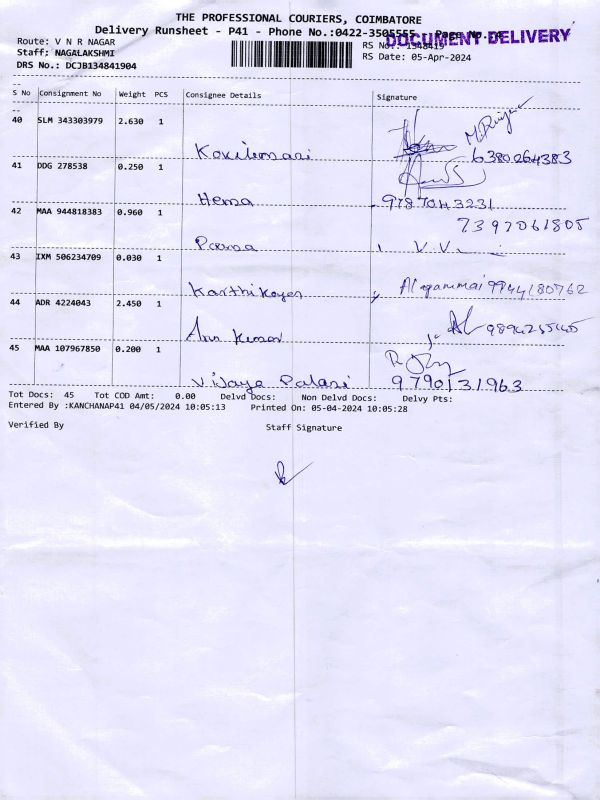 THE PROFESSIONAL COURIERS, COIMBATORE
Delivery Runsheet - P41 - Phone No.:0422-3505555 Page No.:4
DOCUMENT DELIVERY
Route: V N R NAGAR
RS No.: 1348419
Staff: NAGALAKSHMI
RS Date: 05-Apr-2024
DRS No.: DCJB134841904
S No Consignment No Weight PCS Consignee Details Signature
40 SLM 343303979 2.630 1
Kokilamani 6380264383
41 DDG 278538 0.250 1
Hema 9787043231
42 MAA 944818383 0.960 1 7397061805
V.V.
43 IXM 506234709 0.030 1
Karthikeyan Alagammai 9944180762
44 ADR 4224043 2.450 1
Arun Kumar
45 MAA 107967850 0.200 1
Vijaya Palani 9790131963
Tot Docs: 45 Tot COD Amt: 0.00 Delvd Docs: Non Delvd Docs: Delvy Pts:
Entered By :KANCHANAP41 04/05/2024 10:05:13 Printed On: 05-04-2024 10:05:28
Verified By Staff Signature